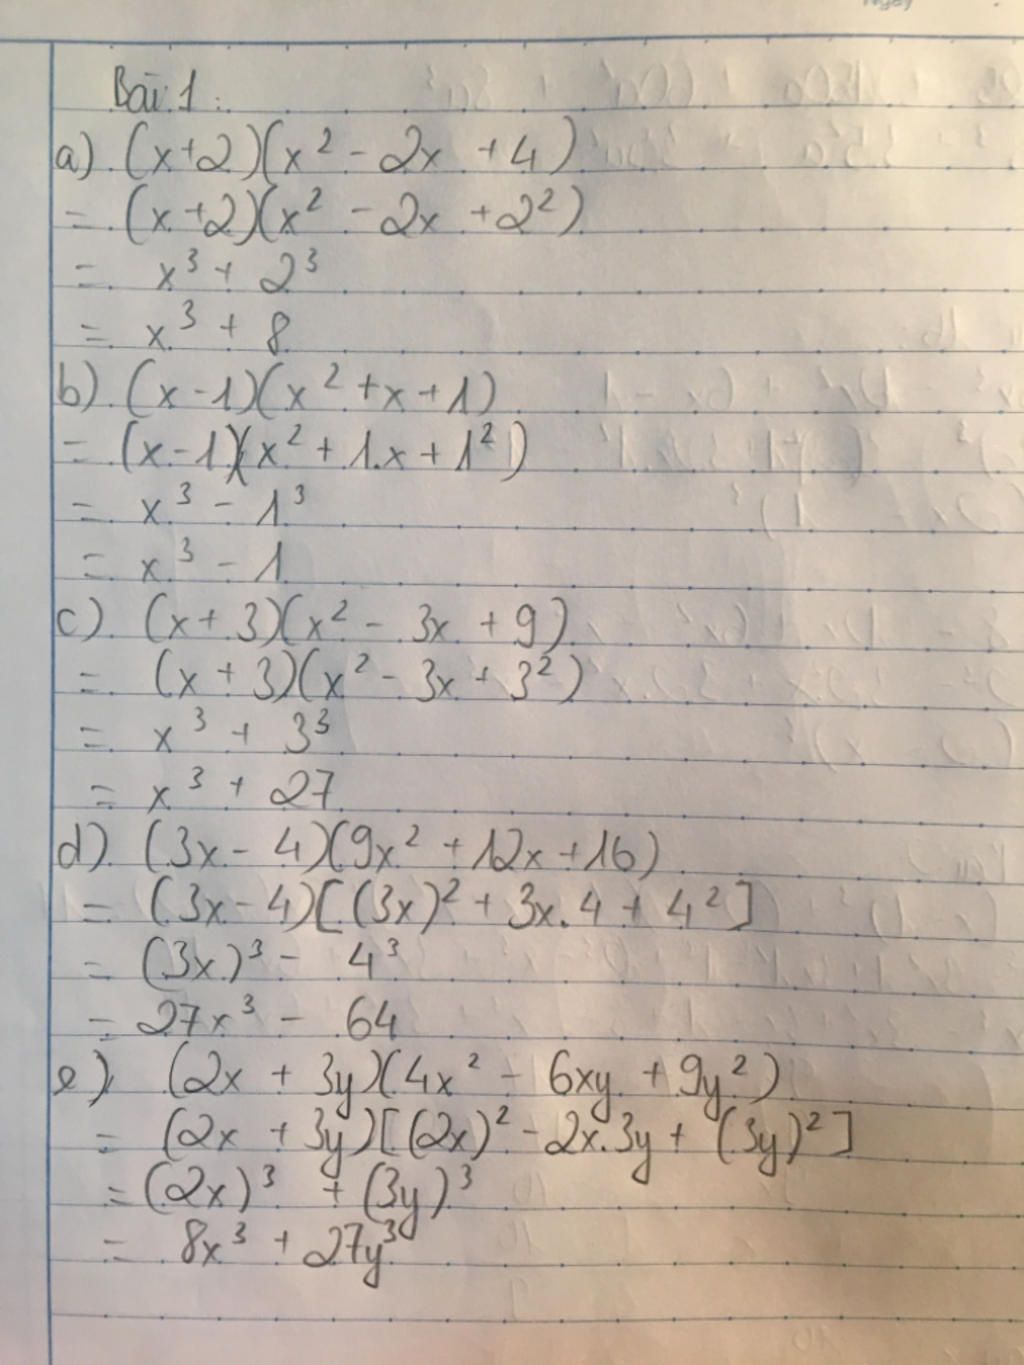 Bài 1:
a) (x+2)(x² - 2x + 4)
= (x+2)(x² - 2x + 2²)
= x³ + 2³
= x³ + 8
b) (x-1)(x² + x + 1)
= (x-1)(x² + 1.x + 1²)
= x³ - 1³
= x³ - 1
c) (x+3)(x² - 3x + 9)
= (x+3)(x² - 3x + 3²)
= x³ + 3³
= x³ + 27
d) (3x - 4)(9x² + 12x + 16)
= (3x - 4)[(3x)² + 3x.4 + 4²]
= (3x)³ - 4³
= 27x³ - 64
e) (2x + 3y)(4x² - 6xy + 9y²)
= (2x + 3y)[(2x)² - 2x.3y + (3y)²]
= (2x)³ + (3y)³
= 8x³ + 27y³